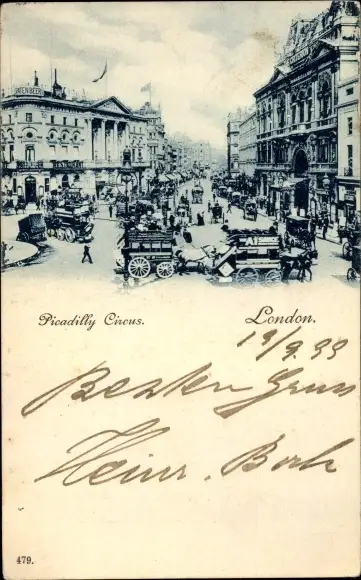 Picadilly Circus.
London.
19/9.99
Besten Gruss
Heinr. Bock
479.